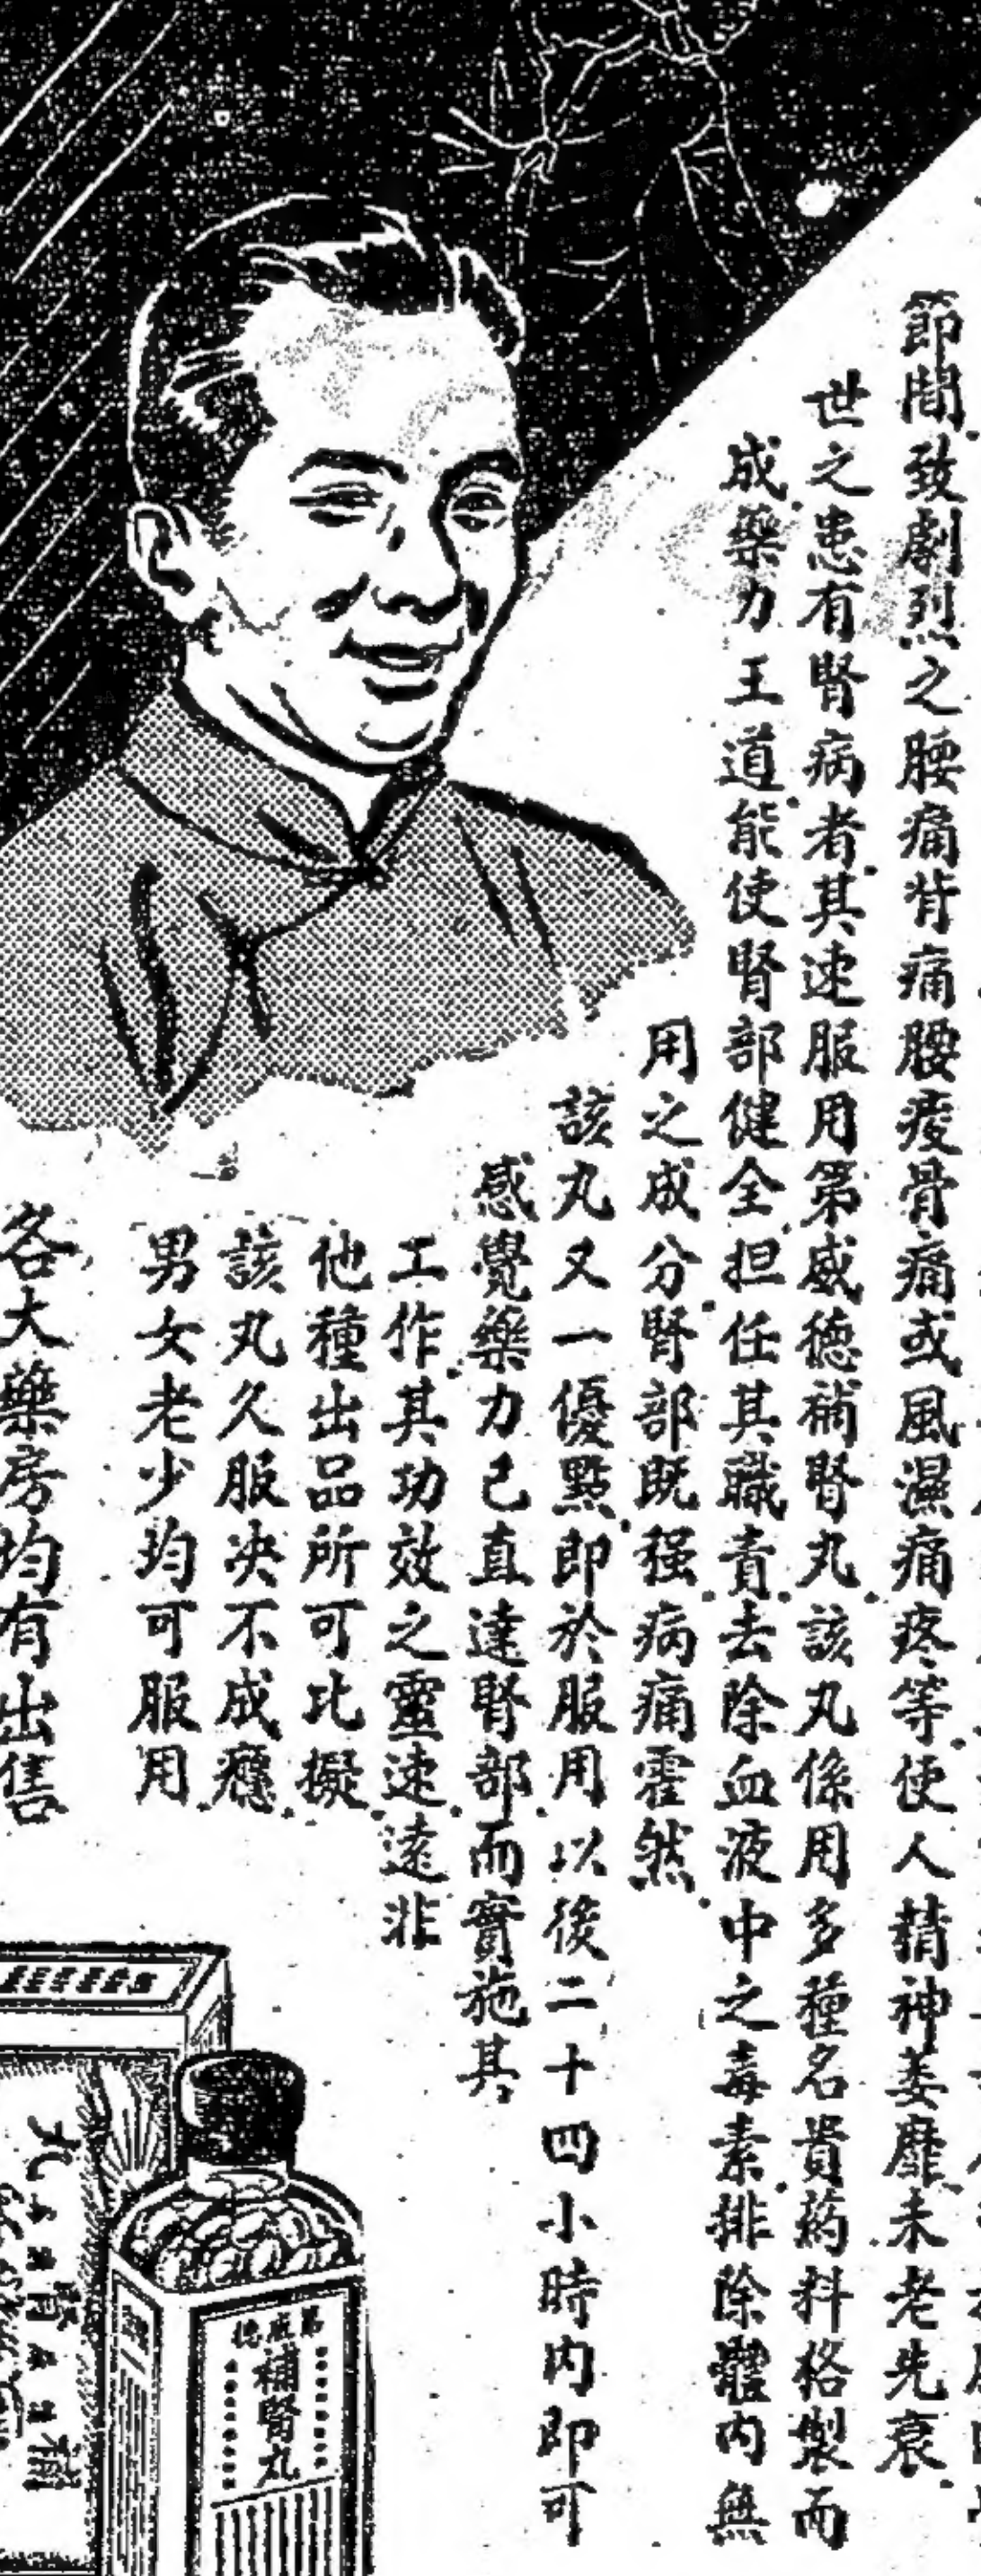 節間致劇烈之腰痛背痛腰痠骨痛或風濕痛疼等使人精神萎靡未老先衰
世之患有腎病者其速服用第威德補腎丸該丸係用多種名貴葯料格製而
成藥力王道能使腎部健全担任其職責去除血液中之毒素排除體內無
用之成分腎部既强病痛霍然
該丸又一優點即於服用以後二十四小時內即可
感覺藥力已直達腎部而實施其
工作其功效之靈速遠非
他種出品所可比擬
該丸久服决不成癮
男女老少均可服用
各大藥房均有出售
第威德
補腎丸